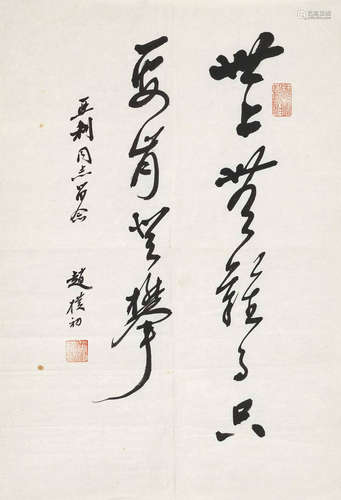 世上無難事只
要肯登攀
亚利同志留念
趙樸初